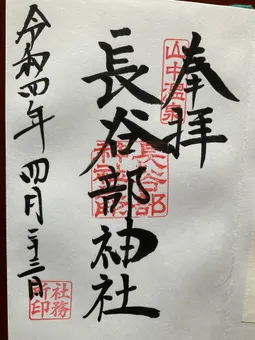 奉拝
山中温泉
長谷部神社
長谷部
令和四年四月二十三日
社務
所印